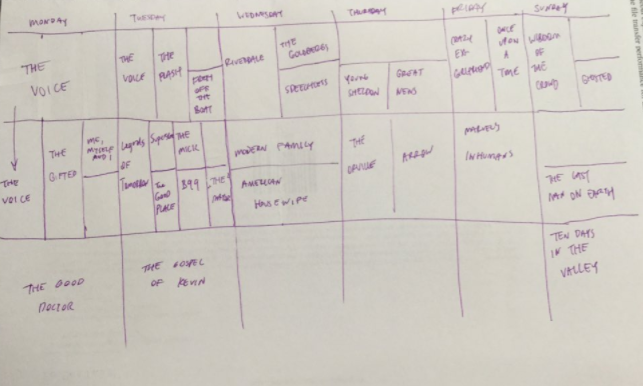 MONDAY
TUESDAY
WEDNESDAY
THURSDAY
FRIDAY
SUNDAY
THE
VOICE
THE
VOICE
THE
FLASH
FRESH
OFF
THE
BOAT
RIVERDALE
THE
GOLDBERGS
SPEECHLESS
YOUNG
SHELDON
GREAT
NEWS
CRAZY
EX-
GIRLFRIEND
ONCE
UPON
A
TIME
WISDOM
OF
THE
CROWD
GHOSTED
THE
VOICE
THE
GIFTED
ME,
MYSELF
AND I
Legends
OF
Tomorrow
THE
MICK
The
GOOD
PLACE
B99
THE
MODERN FAMILY
AMERICAN
HOUSEWIFE
THE
ORVILLE
ARROW
MARVELS
INHUMANS
THE LAST
MAN ON EARTH
THE GOOD
DOCTOR
THE GOSPEL
OF KEVIN
TEN DAYS
IN THE
VALLEY